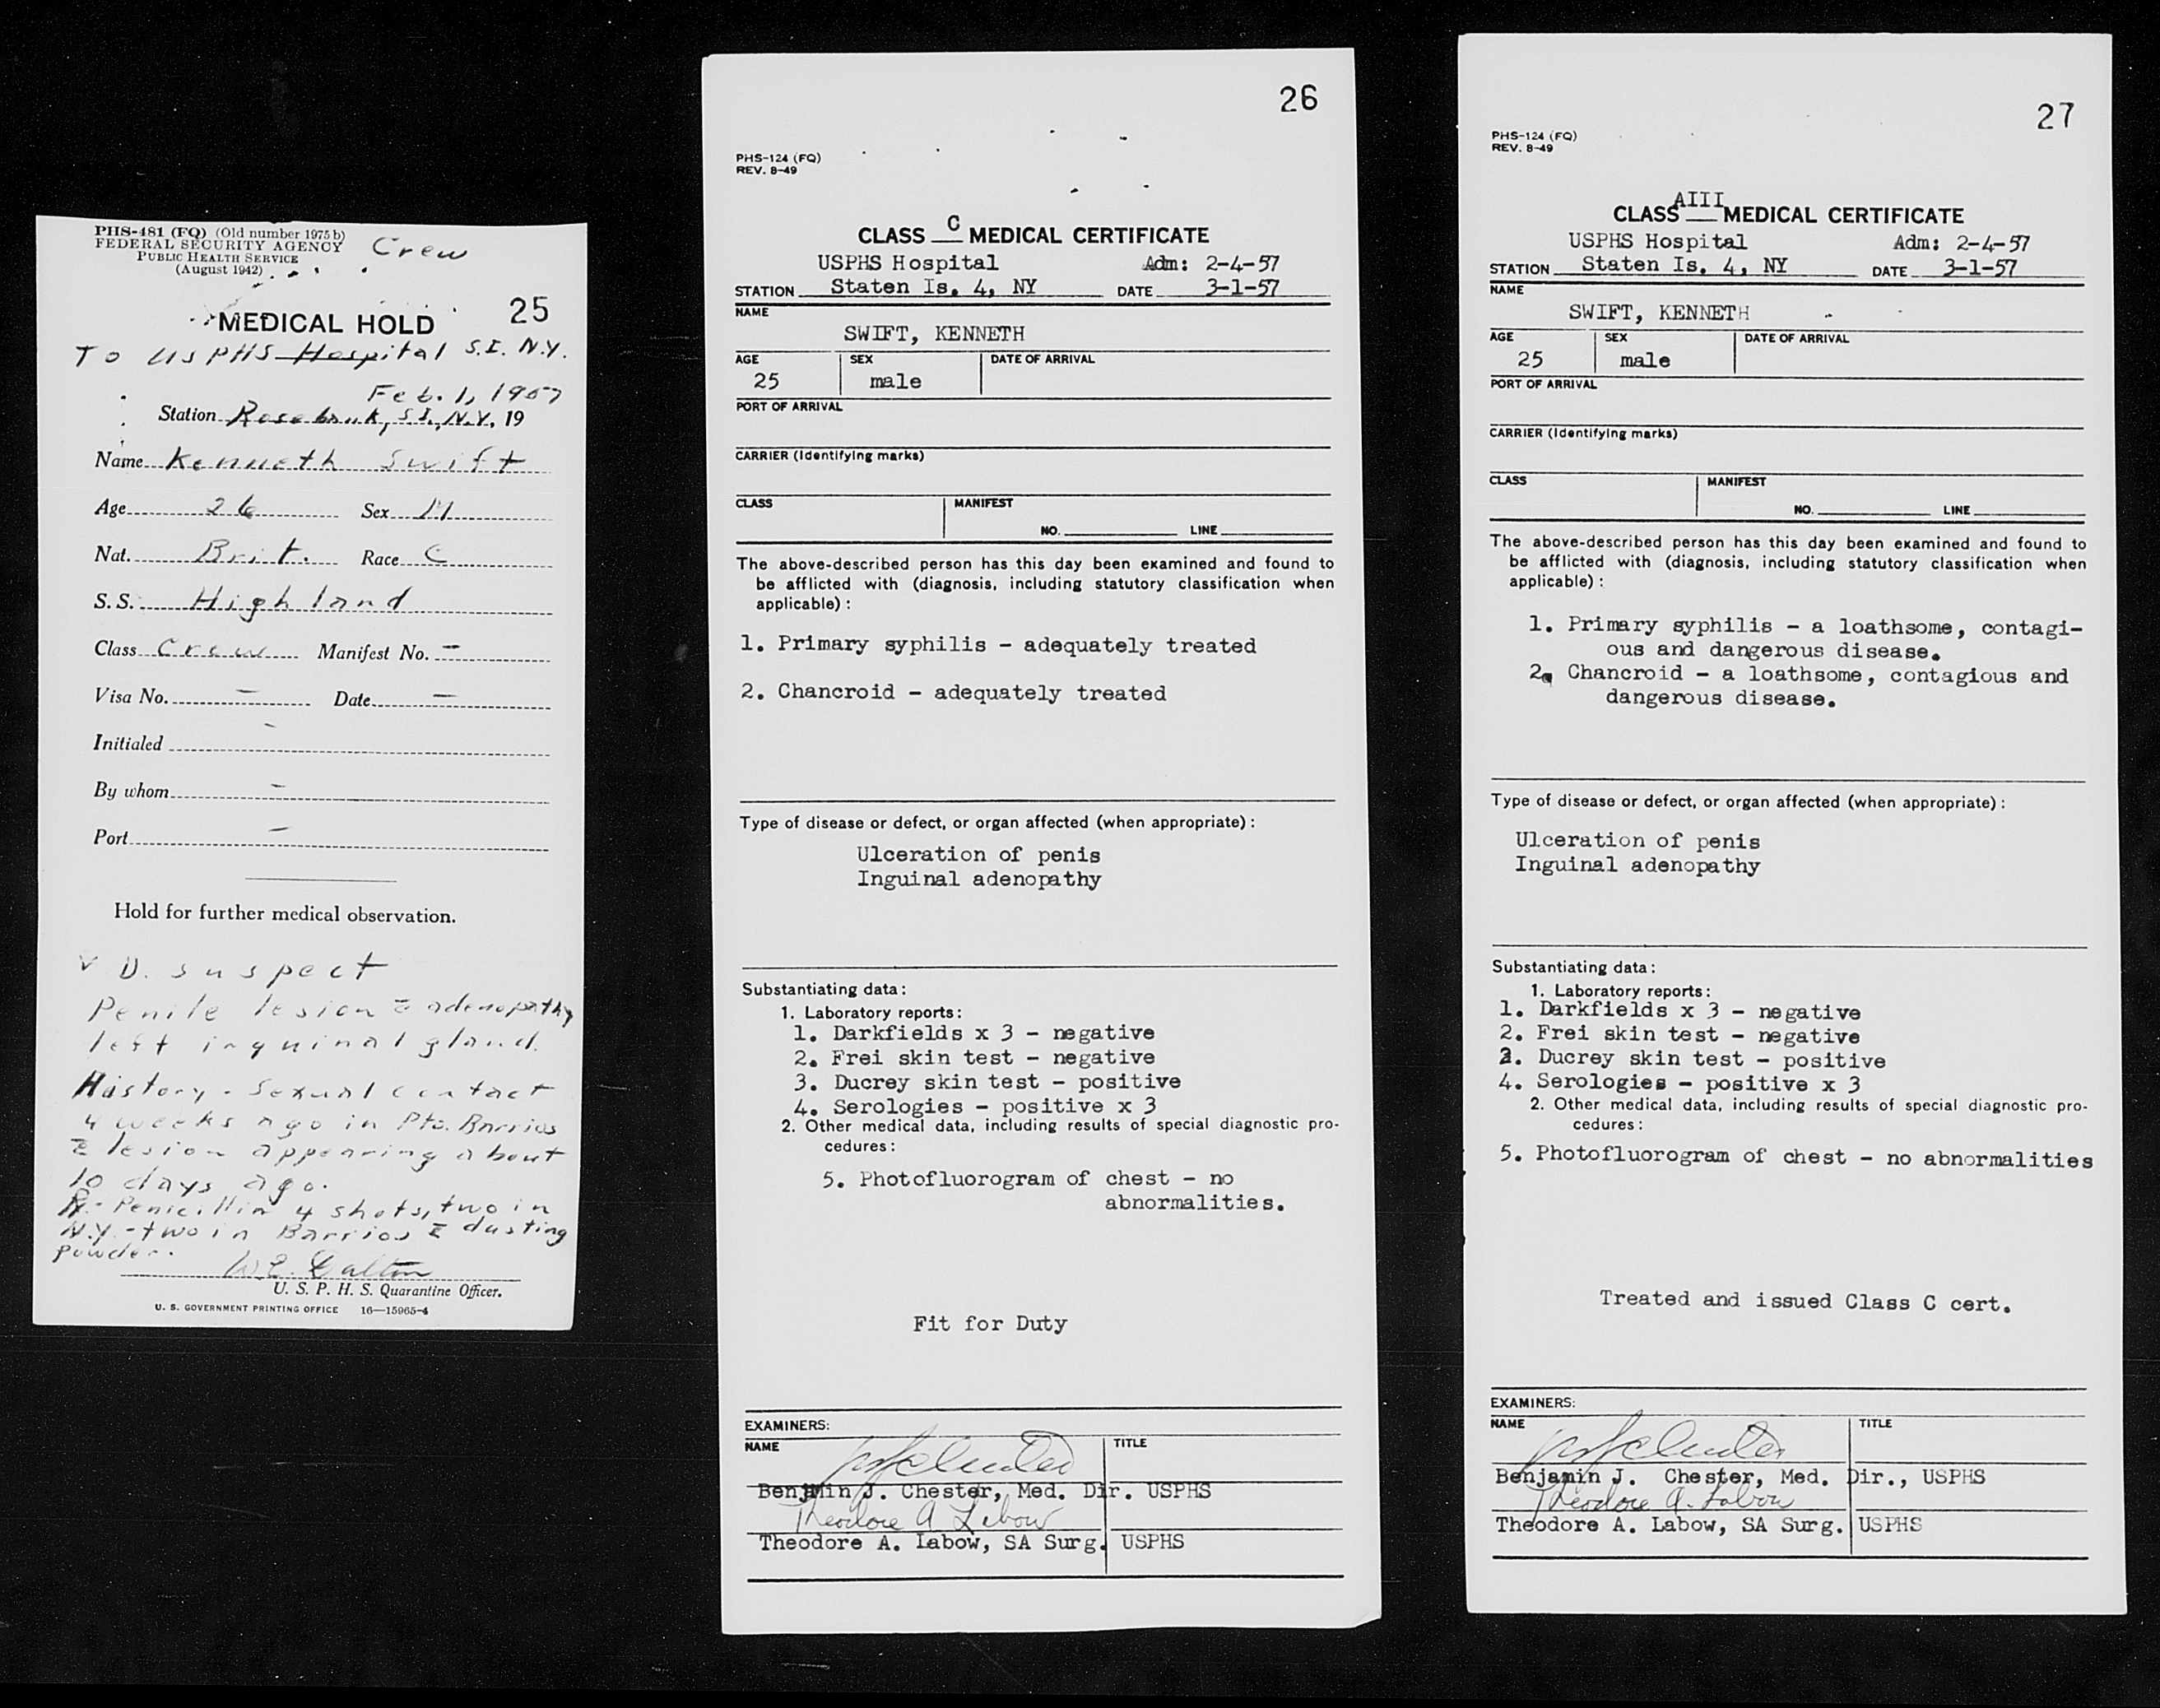 PHS-481 (FQ) (Old number 1975 b)
FEDERAL SECURITY AGENCY
PUBLIC HEALTH SERVICE
(August 1942)
Crew
25
MEDICAL HOLD
To USPHS Hospital S.I. N.Y.
Feb. 1, 1957
Station Rosebank, S.I., N.Y., 19
Name Kenneth Swift
Age 26 Sex M
Nat. Brit. Race C
S. S. Highland
Class Crew Manifest No. —
Visa No. — Date —
Initialed -
By whom —
Port —
Hold for further medical observation.
V D. suspect
Penile lesion c̄ adenopathy
left inguinal gland.
History - Sexual contact
4 weeks ago in Pto. Barrios
c̄ lesion appearing about
10 days ago.
Rx - Penicillin 4 shots, two in
N.Y. - two in Barrios c̄ dusting
powder.
W.E. Dalton
U. S. P. H. S. Quarantine Officer.
U. S. GOVERNMENT PRINTING OFFICE 16—15965-4
26
PHS-124 (FQ)
REV. 8-49
CLASS C MEDICAL CERTIFICATE
USPHS Hospital Adm: 2-4-57
STATION Staten Is. 4, NY DATE 3-1-57
NAME
SWIFT, KENNETH
AGE SEX DATE OF ARRIVAL
25 male
PORT OF ARRIVAL
CARRIER (Identifying marks)
CLASS MANIFEST
NO. LINE
The above-described person has this day been examined and found to
be afflicted with (diagnosis, including statutory classification when
applicable) :
1. Primary syphilis - adequately treated
2. Chancroid - adequately treated
Type of disease or defect, or organ affected (when appropriate) :
Ulceration of penis
Inguinal adenopathy
Substantiating data :
1. Laboratory reports :
1. Darkfields x 3 - negative
2. Frei skin test - negative
3. Ducrey skin test - positive
4. Serologies - positive x 3
2. Other medical data, including results of special diagnostic pro-
cedures :
5. Photofluorogram of chest - no
abnormalities.
Fit for Duty
EXAMINERS:
NAME TITLE
Benjamin J. Chester, Med. Dir. USPHS
Theodore A Labow
Theodore A. Labow, SA Surg. USPHS
27
PHS-124 (FQ)
REV. 8-49
CLASS AIII MEDICAL CERTIFICATE
USPHS Hospital Adm: 2-4-57
STATION Staten Is. 4, NY DATE 3-1-57
NAME
SWIFT, KENNETH
AGE SEX DATE OF ARRIVAL
25 male
PORT OF ARRIVAL
CARRIER (Identifying marks)
CLASS MANIFEST
NO. LINE
The above-described person has this day been examined and found to
be afflicted with (diagnosis, including statutory classification when
applicable) :
1. Primary syphilis - a loathsome, contagi-
ous and dangerous disease.
2. Chancroid - a loathsome, contagious and
dangerous disease.
Type of disease or defect, or organ affected (when appropriate) :
Ulceration of penis
Inguinal adenopathy
Substantiating data :
1. Laboratory reports :
1. Darkfields x 3 - negative
2. Frei skin test - negative
3. Ducrey skin test - positive
4. Serologies - positive x 3
2. Other medical data, including results of special diagnostic pro-
cedures :
5. Photofluorogram of chest - no abnormalities
Treated and issued Class C cert.
EXAMINERS:
NAME TITLE
Benjamin J. Chester, Med. Dir., USPHS
Theodore A. Labow
Theodore A. Labow, SA Surg. USPHS